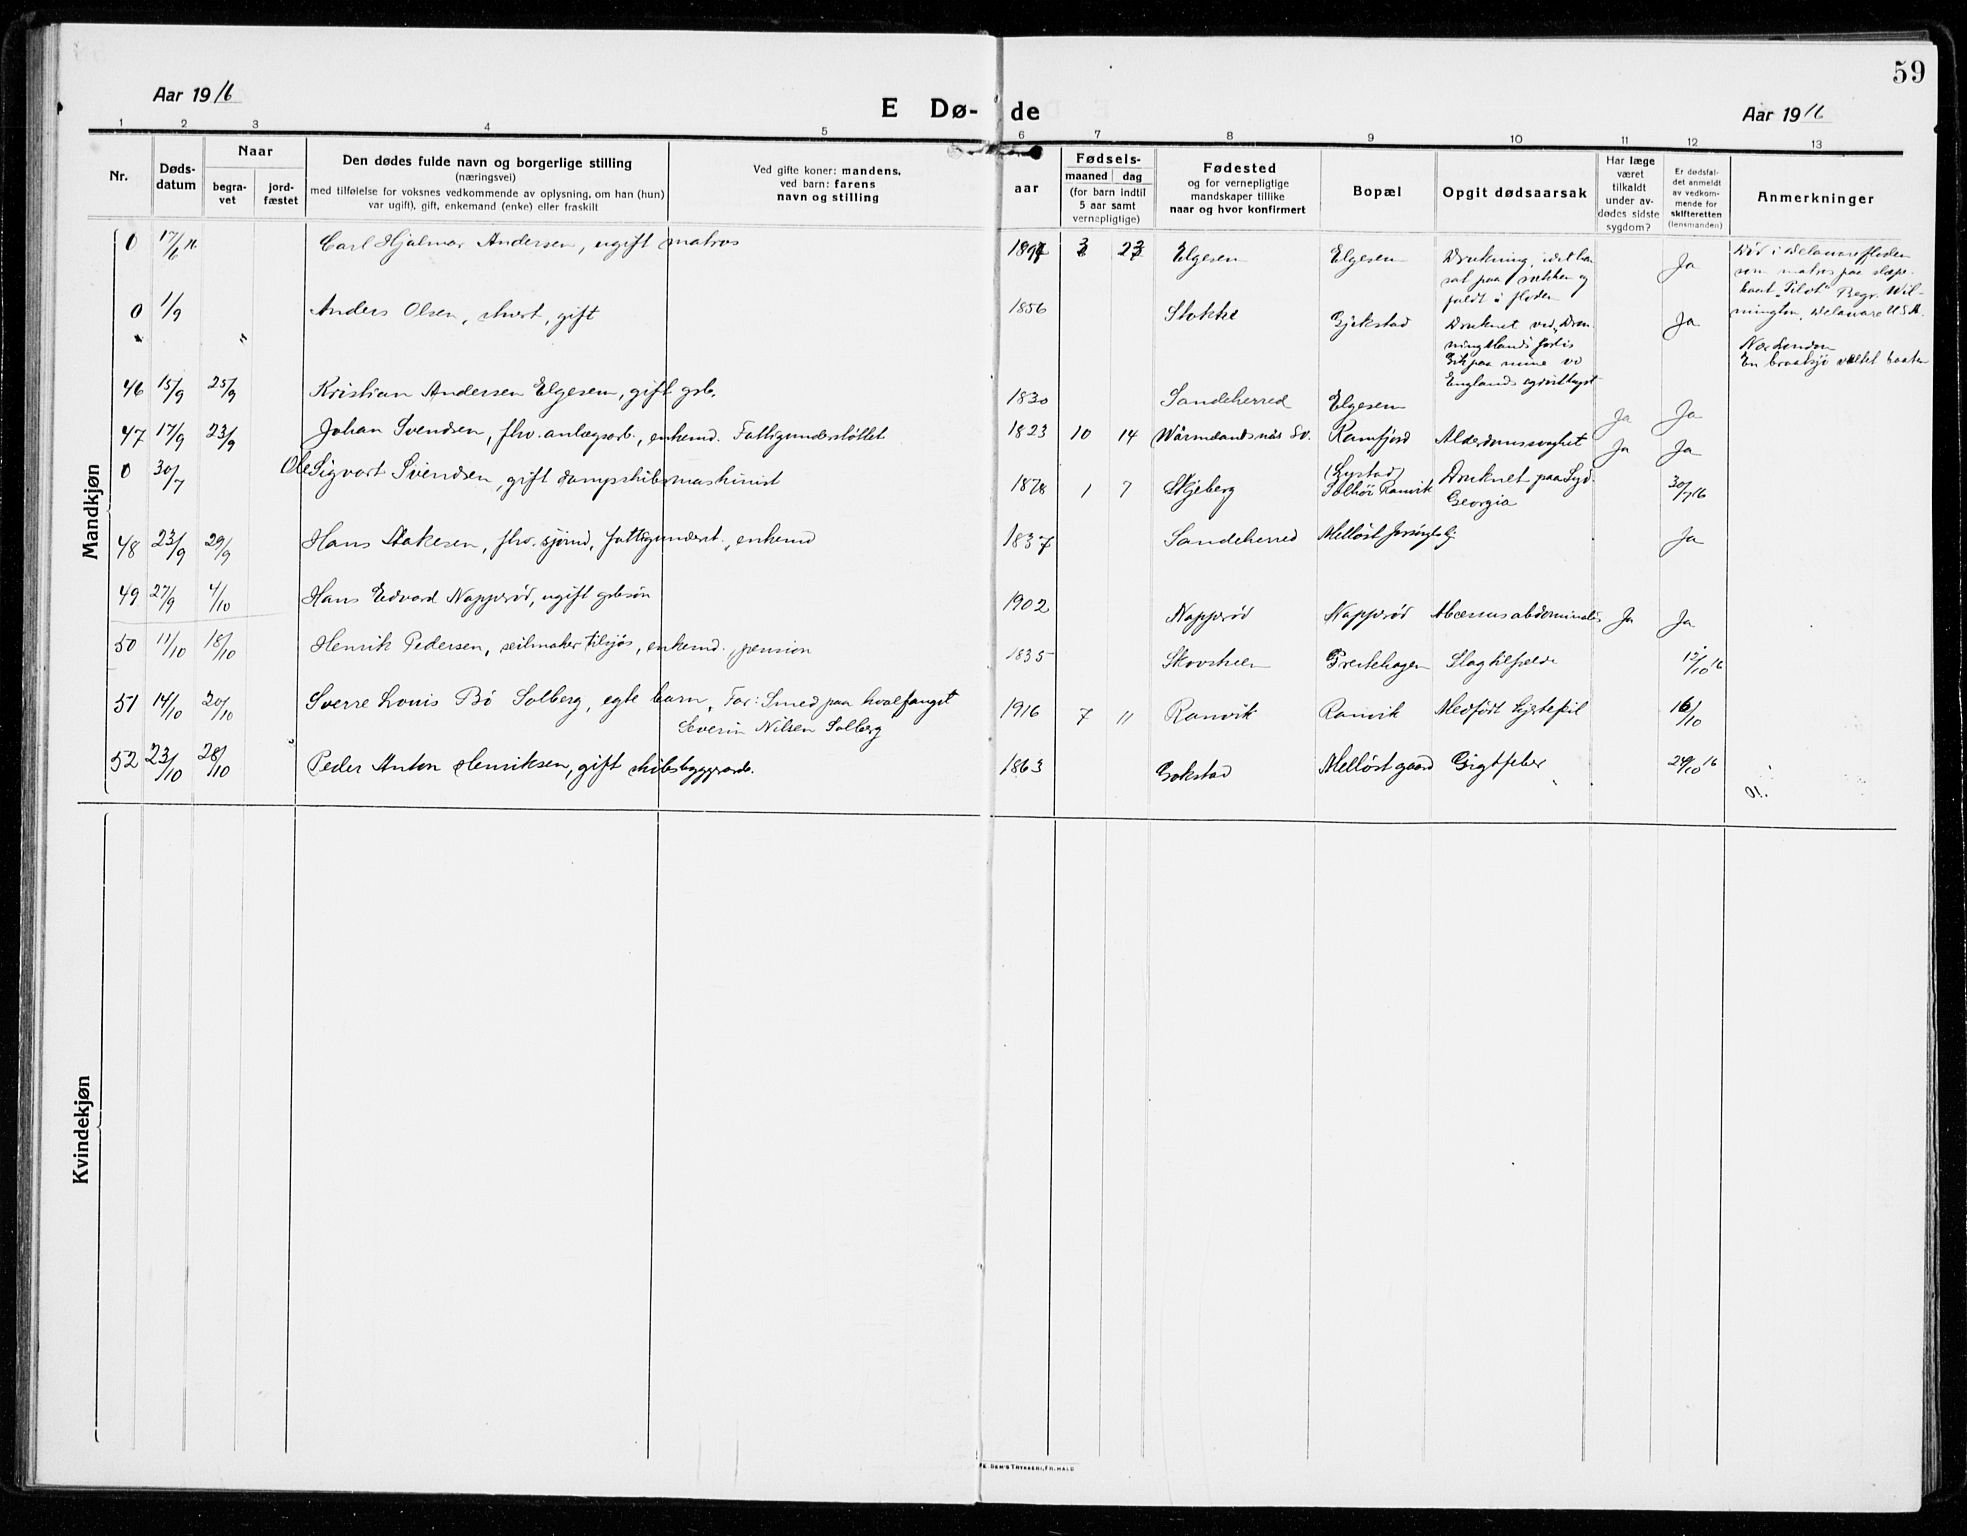 59
Aar 1916
E Dø- de
Aar 1916
1 2 3 4 5 6 7 8 9 10 11 12 13
Nr.
Døds-
datum
Naar
begra-
vet
jord-
fæstet
Den dødes fulde navn og borgerlige stilling
(næringsvei)
med tilføielse for voksnes vedkommende av oplysning, om han (hun)
var ugift), gift, enkemand (enke) eller fraskilt
Ved gifte koner: mandens,
ved barn: farens
navn og stilling
aar
Fødsels-
maaned dag
(for barn indtil
5 aar samt
vernepligtige)
Fødested
og for vernepligtige
mandskaper tillike
naar og hvor konfirmert
Bopæl
Opgit dødsaarsak
Har læge
været
tilkaldt
under av-
dødes sidste
sygdom?
Er dødsfal-
det anmeldt
av vedkom-
mende for
skifteretten
(lensmanden)
Anmerkninger
Mandkjøn
0 17/6 16 Carl Hjalmar Andersen, ugift matros 1897 23 Elgesen Elgesen Drukning, idet han Ja Død i Delawarefloden
sat paa rækken og som matros paa slæpe-
faldt i floden baat "Pilot" Begr. Wil-
mington, Delaware U.S.A.
0 1/9 Anders Olsen, stuert, gift 1856 Stokke Gjekstad Druknet ved, Dron Ja
ningtlands forlis
Gik paa mine ved En braatsjø væltet baaten
Englands sydvestkyst
46 15/9 25/9 Kristian Andersen Elgesem, gift gsb. 1830 Sandeherred Elgesem Ja Ja
47 17/9 23/9 Johan Svendsen, fhv. anlægsarb., enkemd. Fattigunderstøttet 1823 10 14 Värmlandsnäs Sv. Ramfjord Alderdomssvaghet Ja Ja
0 30/7 Ole Sigvart Svendsen, gift dampskibsmaskinist 1878 1 7 Skjeberg (Lystad) Ranvik Druknet paa Syd- 30/7 16
Georgia
48 23/9 29/9 Hans Aakesen, fhv. sjømd, fattigunderst., enkemd 1837 Sandeherred Melløst Ja
49 27/9 4/10 Hans Edvard Napperød, ugift gbsøn 1902 Napperød Napperød Abcessus abdominalis Ja Ja
50 11/10 18/10 Henrik Pedersen, seilmaker tilsjøs, enkemd., pension 1835 Skovskien Preståhagen Slagtilfælde 12/10 16
51 14/10 20/10 Sverre Louis Bø Solberg, egte barn, Far: Smed paa hvalfangst 1916 7 11 Ranvik Ranvik Medfødt hjertefeil 16/10
Severin Nilsen Solberg
52 23/10 28/10 Peder Anton Henriksen, gift skibsbyggerarb. 1863 Gokstad Melløst gaard Gigtfeber 24/10 16
Kvindekjøn